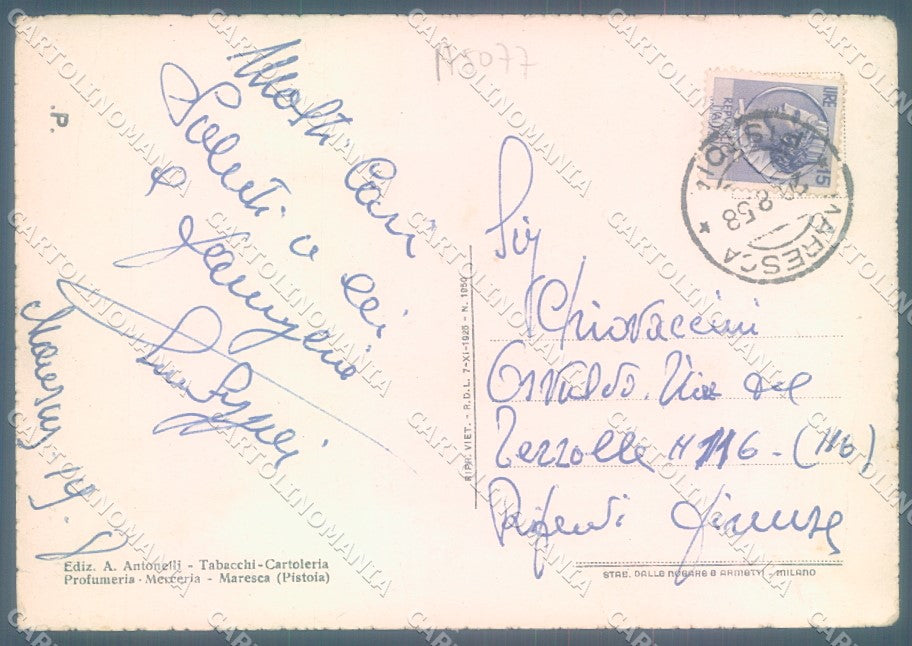 A5077
P.
Molti Cari
Saluti a lei
e famiglia
Maresca 19. 8
Ediz. A. Antonelli - Tabacchi-Cartoleria
Profumeria - Merceria - Maresca (Pistoia)
RIPR. VIET. - R.D.L. 7-XI-1925 - N. 1950
LIRE 15
MARESCA
8.58
Sig
Chiovaccini
Osvaldo. Via del
Terzolle N 116 - (116)
Rifredi Firenze
STAB. DALLE NOGARE & ARMETTI - MILANO
CARTOLINOMANIA